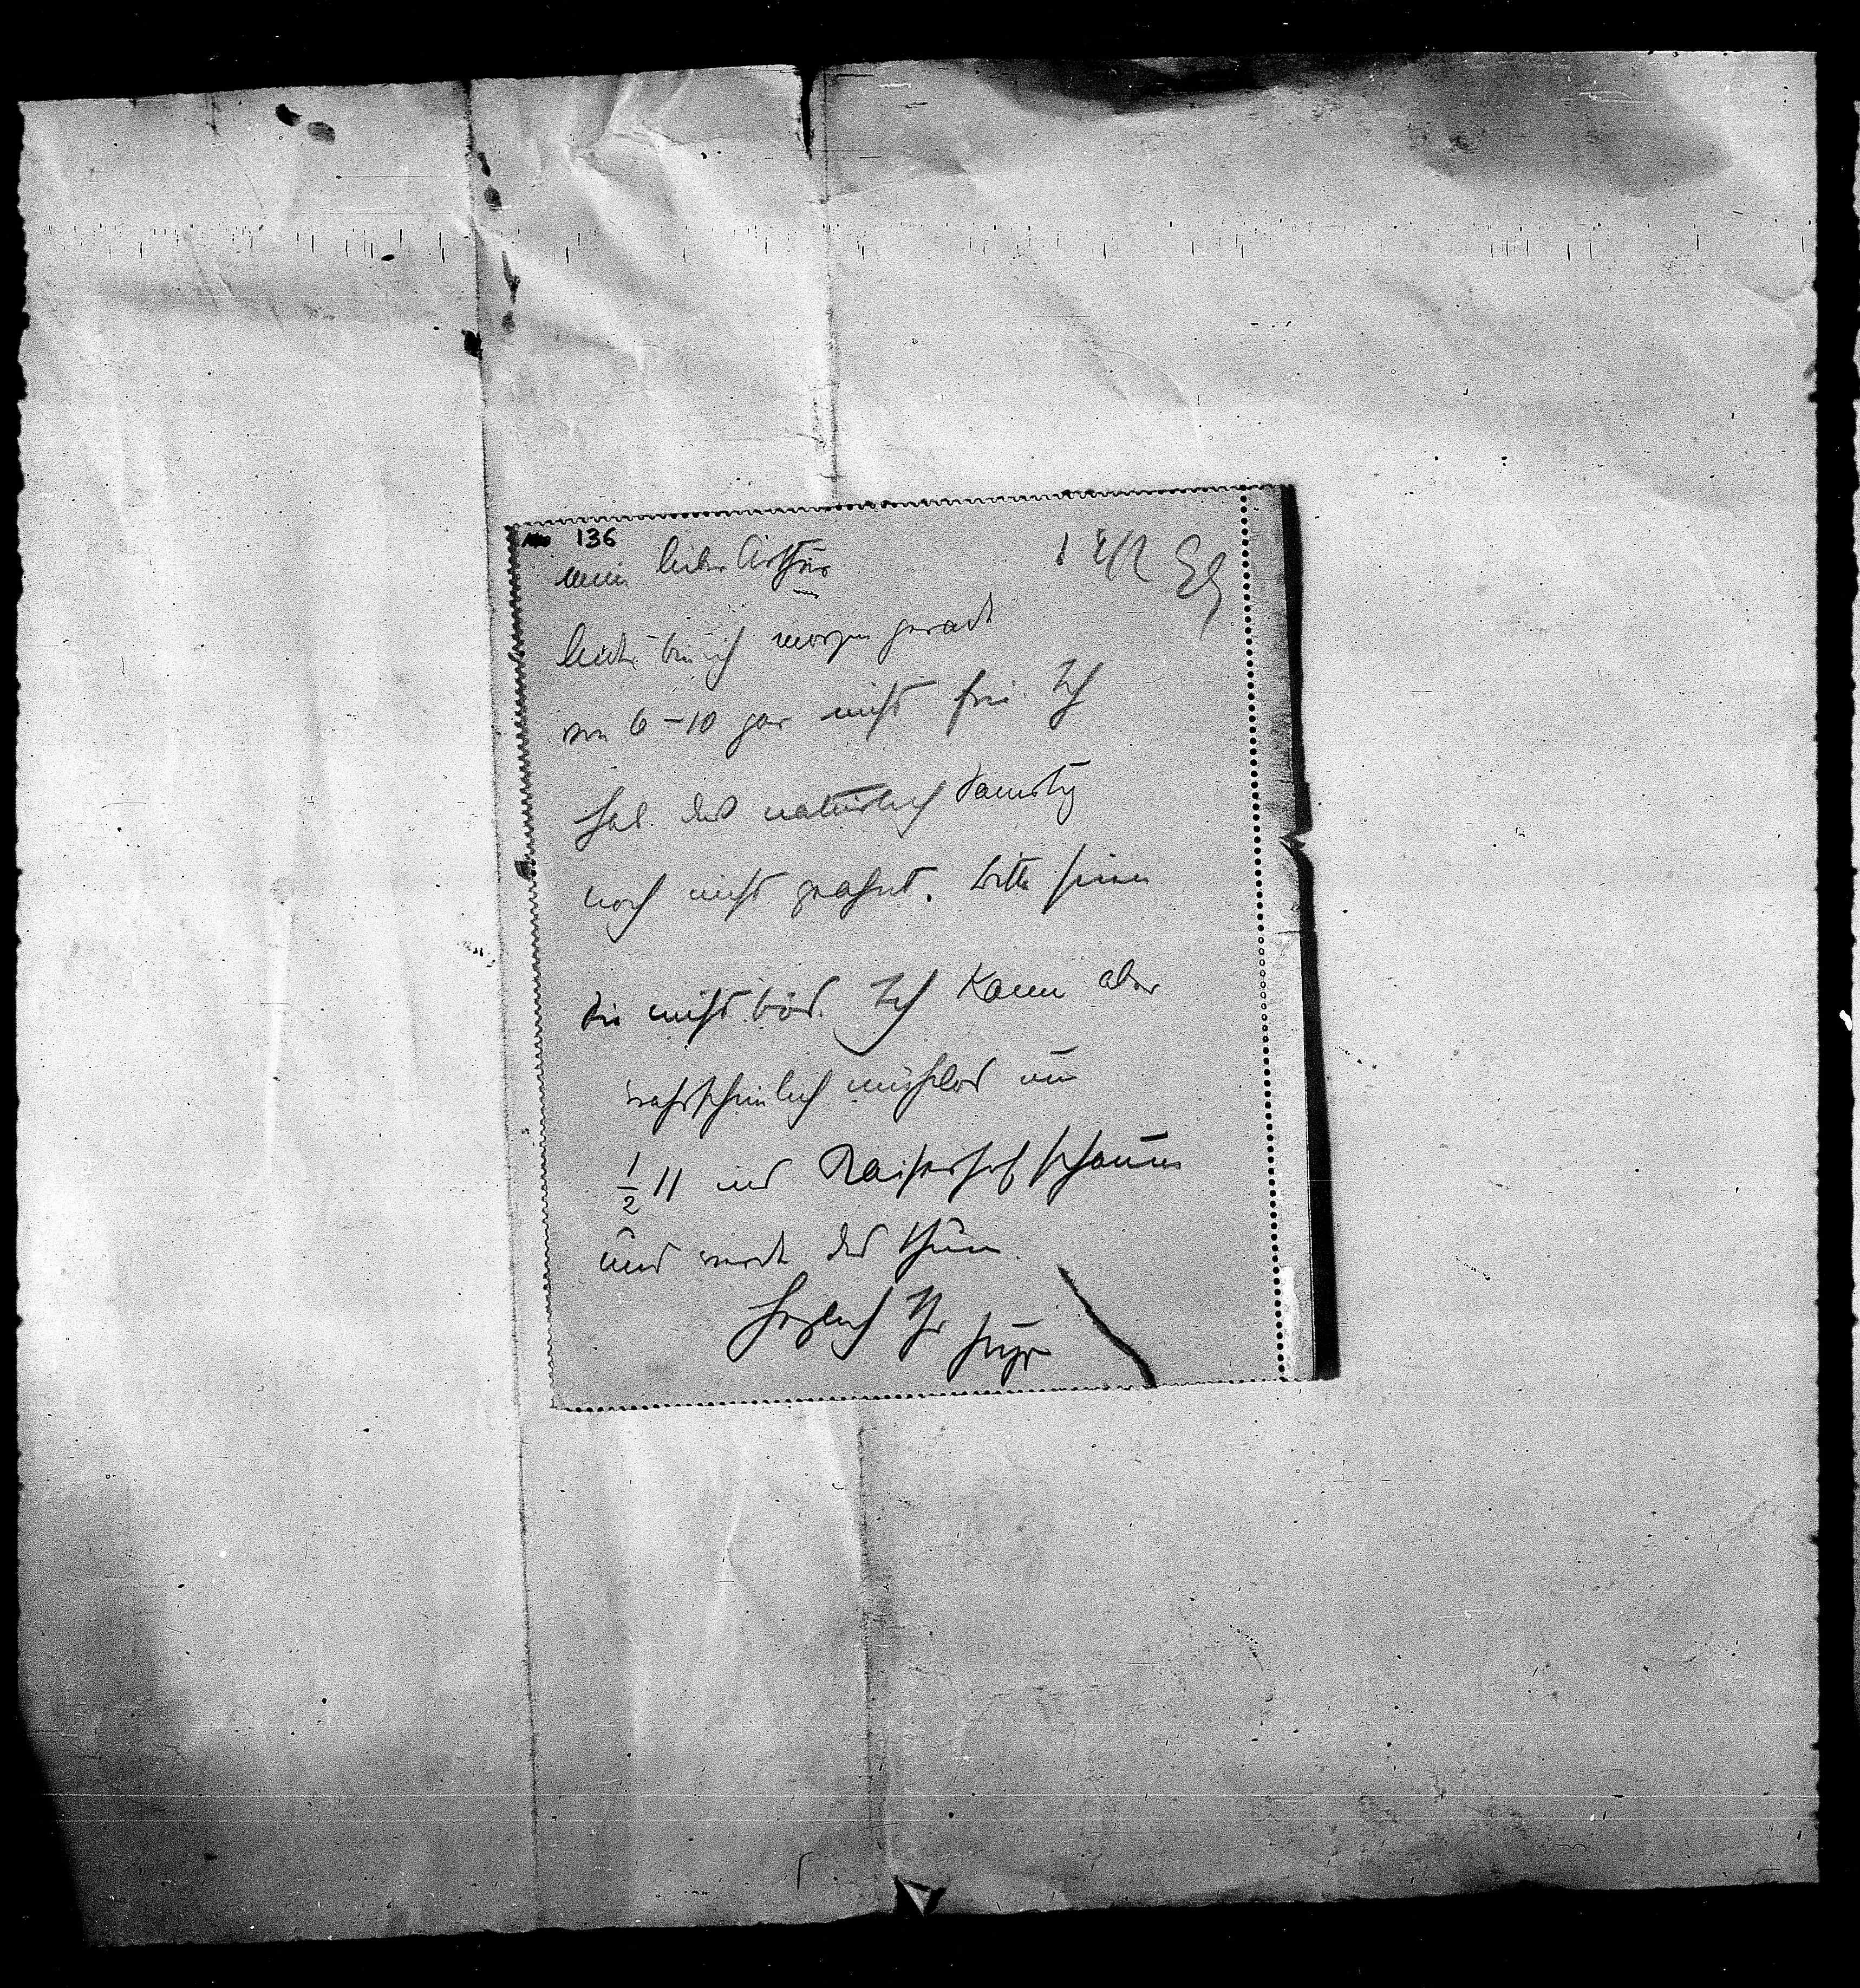 136
mein lieber Arthur
leider bin ich morgen gerade
von 6–10 gar nicht frei. Ich
hab das natürlich Samstag
noch nicht geahnt. Bitte seien
Sie nicht bös. Ich kann aber
wahrscheinlich mühelos um
½11 ins Kaiserhof schauen
und werde das thun.
Herzlich Ihr Hugo